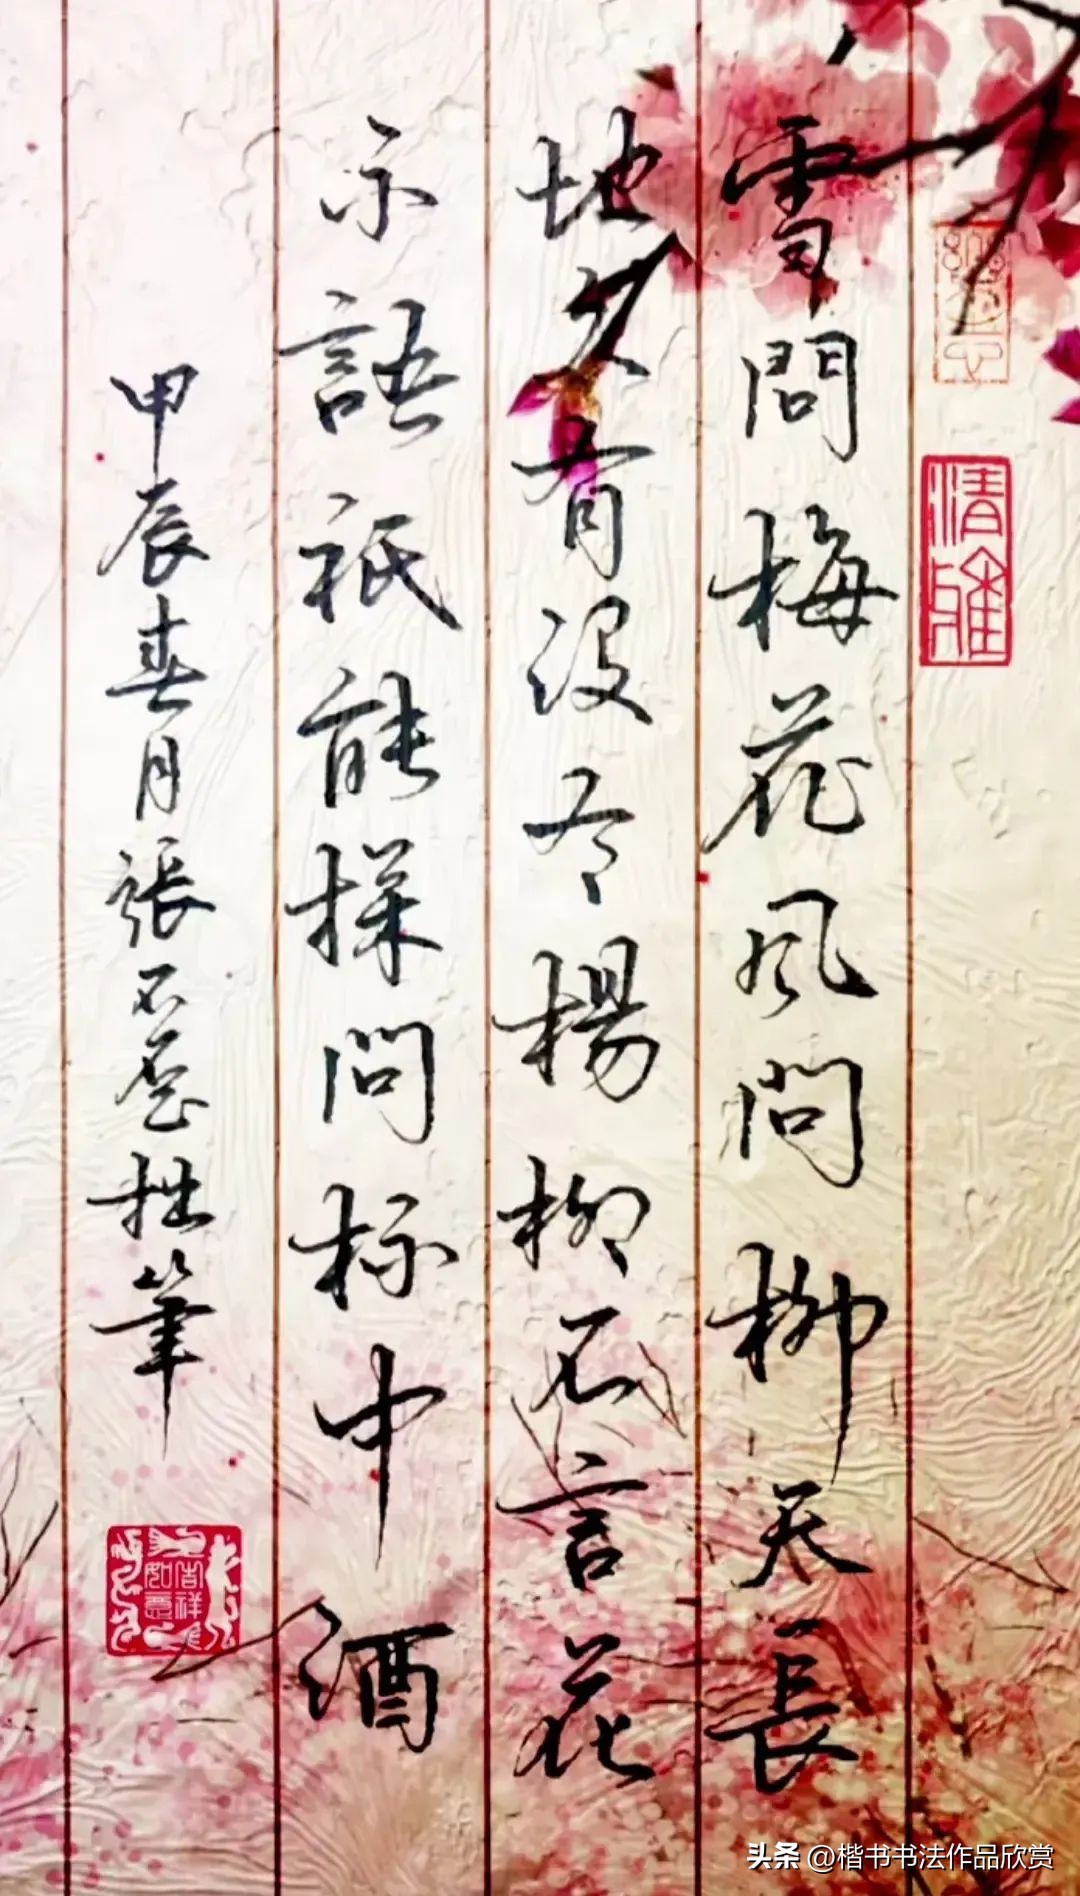 雪問梅花風問柳天長
地久有没有楊柳不言花
不語祇能探問杯中酒
甲辰春月張不

拙筆
清雅
吉祥如意
头条 @楷书书法作品欣赏